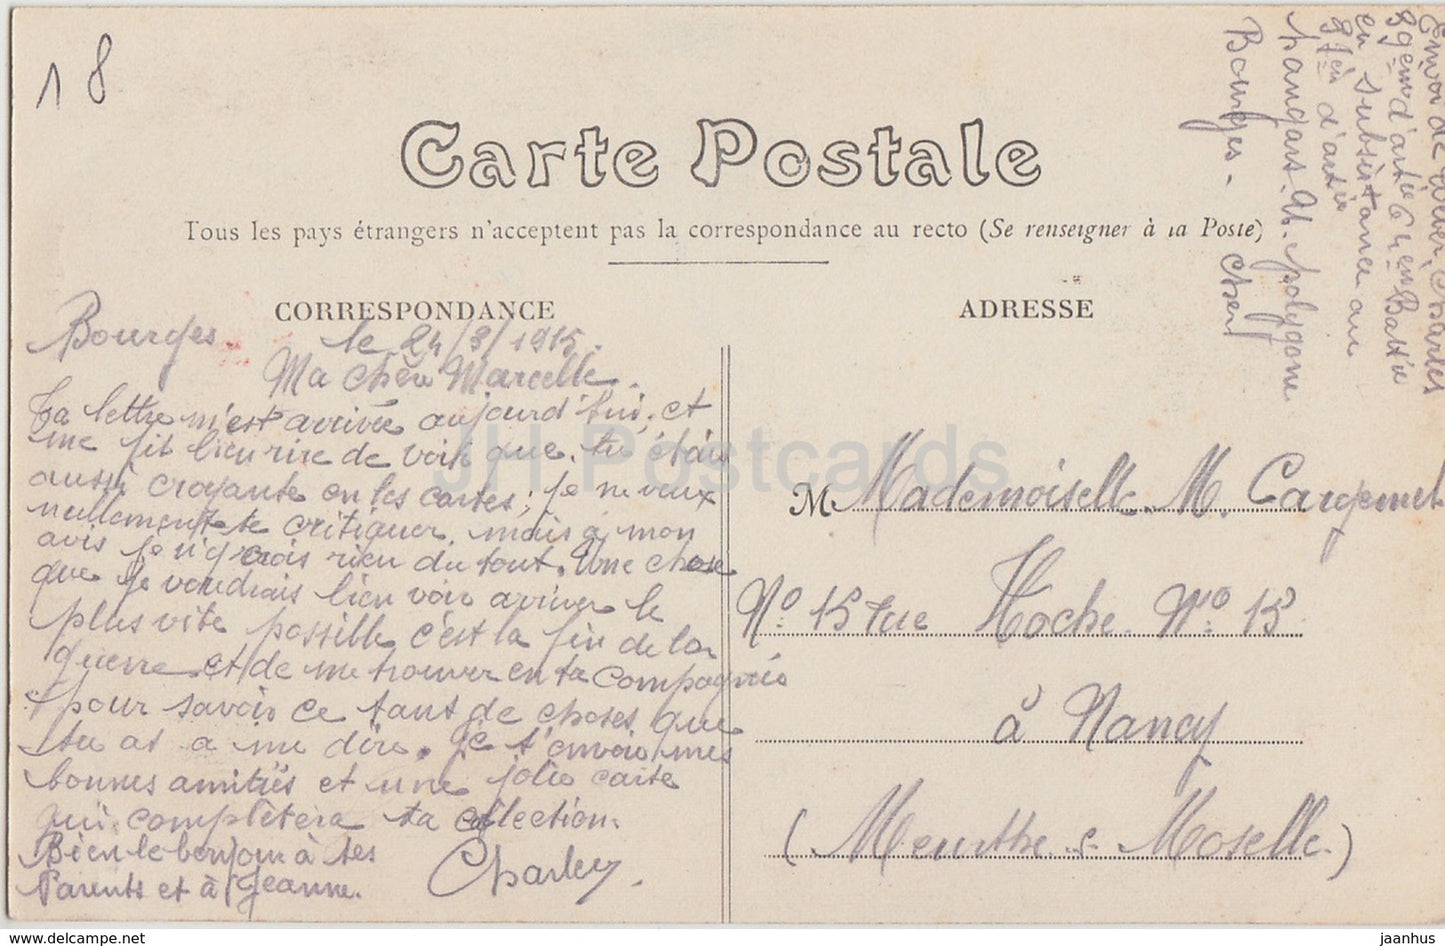 18
Carte Postale
Tous les pays étrangers n'acceptent pas la correspondance au recto (Se renseigner à la Poste)
CORRESPONDANCE
Bourges. le 24/8/1915.
Ma chère Marcelle.
Ta lettre m'est arrivée aujourd'hui, et
me fit bien rire de voir que tu étais
aussi croyante en les cartes; je ne veux
nullement te critiquer, mais à mon
avis je n'y crois rien du tout. Une chose
que je voudrais bien voir arriver le
plus vite possible c'est la fin de la
guerre et de me trouver en ta compagnie
pour savoir ce tant de choses que
tu as a me dire. Je t'envoie mes
bonnes amitiés et une jolie carte
qui complètera ta collection.
Bien le bonjour à tes
Parents et à Jeanne.
Charley.
ADRESSE
M Mademoiselle M.
No 15 rue Hoche No 15
à Nancy
(Meurthe & Moselle)
Envoi de
d'artie 64em Battie
en subsistance au
d'artie
hangars 91. polygone
Bourges. Cher
JH Postcards
jaanhus @ delcampe.net